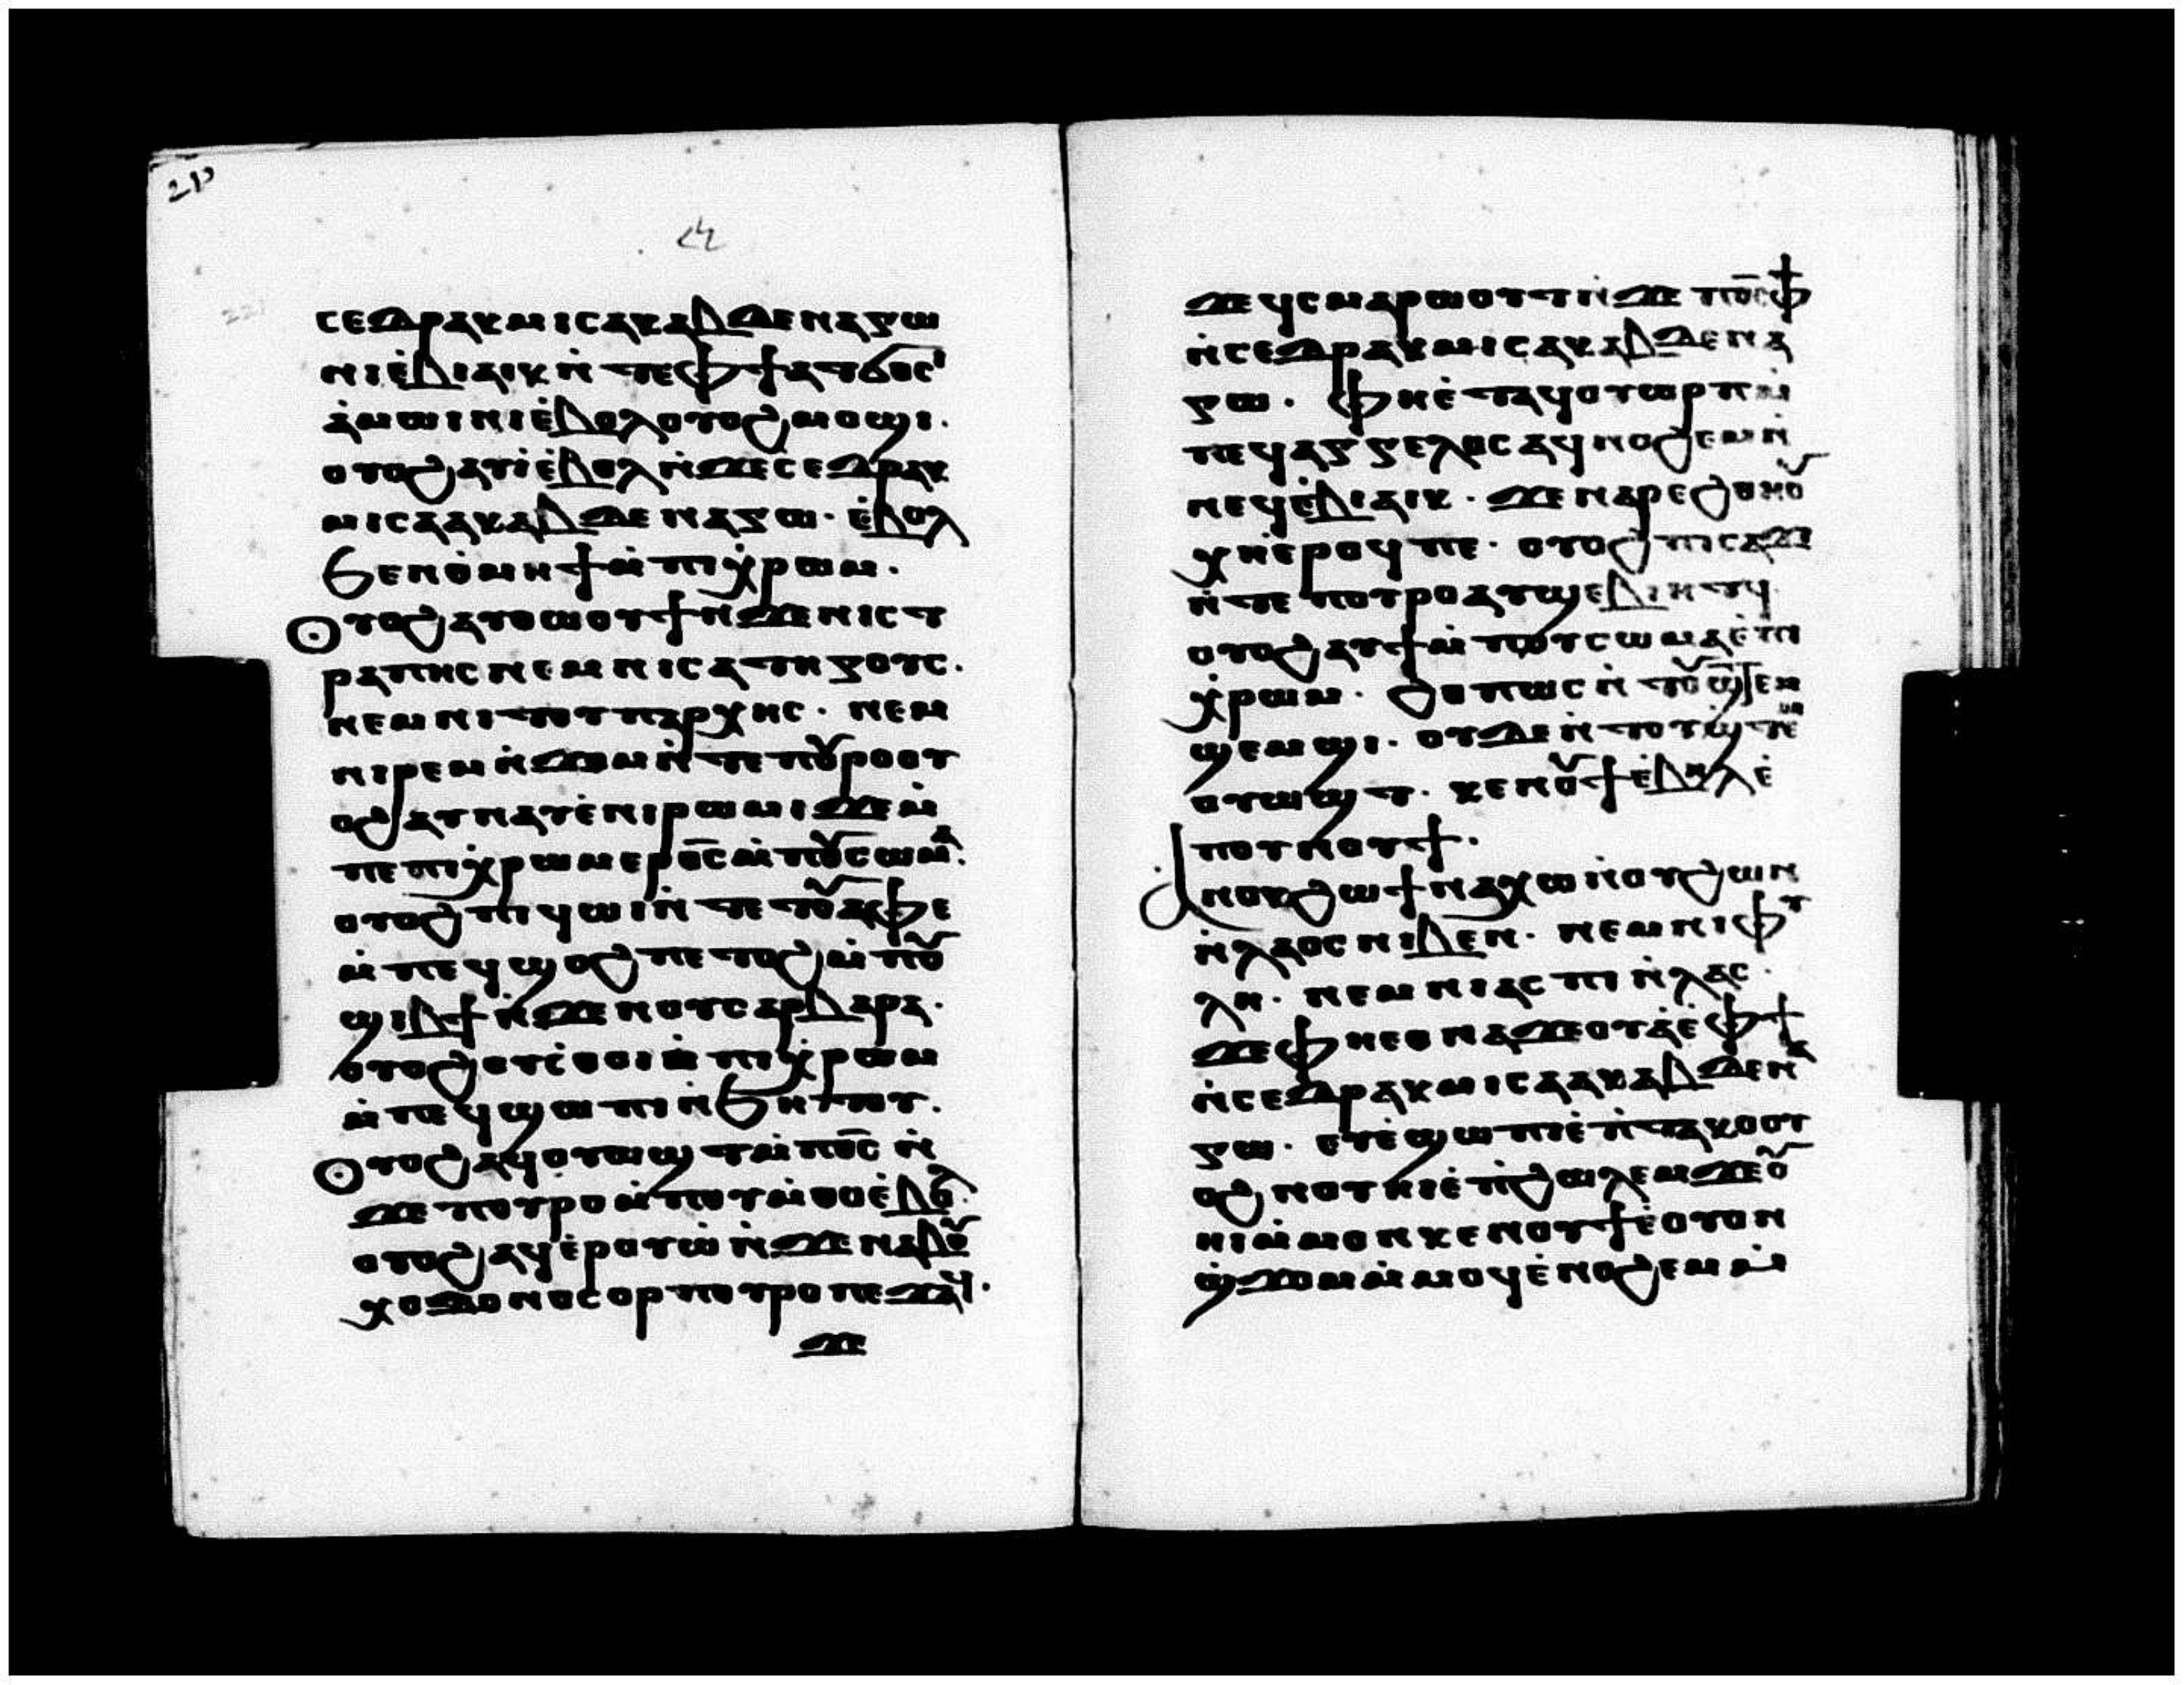 ⲥⲉⲇⲣⲁⲕ ⲙⲓⲥⲁⲕ ⲁⲃⲇⲉⲛⲁⲅⲱ
ⲛⲓⲉ̇ⲃⲓⲁⲓⲕ ⲛ̇ⲧⲉ ⲫϯ ⲉⲧϭⲟⲥⲓ
ⲁ̇ⲙⲱⲓⲛⲓ ⲉ̇ⲃⲟⲗ ⲟⲩⲟϩ ⲙⲟϣⲓ.
ⲟⲩⲟϩ ⲁⲩⲓ̇ ⲉ̇ⲃⲟⲗ ⲛ̇ϫⲉ ⲥⲉⲇⲣⲁⲕ
ⲙⲓⲥⲁⲁⲕ ⲁⲃⲇⲉⲛⲁⲅⲱ. ⲉ̇ⲃⲟⲗ
ϧⲉⲛ ⲑ̇ⲙⲏϯ ⲙ̇ⲡⲓⲭ̇ⲣⲱⲙ.
ⲟⲩⲟϩ ⲁⲩⲑⲱⲟⲩϯ ⲛ̇ϫⲉ ⲛⲓⲥⲧ
ⲣⲁⲡⲏⲥ ⲛⲉⲙ ⲛⲓⲥⲁⲧⲏⲅⲟⲩⲥ.
ⲛⲉⲙ ⲛⲓⲧⲟⲩⲡⲁⲣⲭⲏⲥ. ⲛⲉⲙ
ⲛⲓⲣⲉⲙⲛ̇ϫⲟⲙ ⲛ̇ⲧⲉ ⲡⲟⲩⲣⲟ ⲟⲩ
ⲟϩ ⲁⲩⲛⲁⲩ ⲉ̇ⲛⲓⲣⲱⲙⲓ ϫⲉ ⲙ̇
ⲡⲉ ⲡⲓⲭ̇ⲣⲱⲙ ⲉⲣⲟ̅ⲥ̅ ⲙ̇ⲡⲟⲩⲥⲱⲙⲁ.
ⲟⲩⲟϩ ⲡⲓϥⲱⲓ ⲛ̇ⲧⲉ ⲧⲟⲩⲁⲫⲉ
ⲙ̇ⲡⲉϥϣⲟϩ ⲡⲉⲧⲟϩ ⲙ̇ⲡⲟⲩ
ϣⲓⲃϯ ⲛ̇ϫⲉ ⲛⲟⲩⲥⲁⲣⲃⲁⲣⲁ.
ⲟⲩⲟϩ ⲟⲩⲥ̇ⲑⲟⲓ ⲙ̇ⲡⲓⲭ̇ⲣⲱⲙ
ⲙ̇ⲡⲉϥϣⲱⲡⲓ ⲛ̇ϧⲏⲧⲟⲩ.
ⲟⲩⲟϩ ⲁϥⲟⲩⲱϣⲧ ⲙ̇ⲡⲟ̅ⲥ̅ ⲛ̇
ϫⲉ ⲡⲟⲩⲣⲟ ⲙ̇ⲡⲟⲩⲙ̇ⲑⲟ ⲉ̇ⲃⲟⲗ.
ⲟⲩⲟϩ ⲁϥⲉ̇ⲣⲟⲩⲱ̇ ⲛ̇ϫⲉ ⲛⲁⲃⲟⲩ
ⲭⲟⲇⲟⲛⲟⲥⲟⲣ ⲡⲟⲩⲣⲟ ⲡⲉϫⲁϥ.
ϫⲉ
ϫⲉ ϥ̇ⲥⲙⲁⲣⲱⲟⲩⲧ ⲛ̇ϫⲉ ⲡⲟ̅ⲥ̅ ⲫϯ
ⲛ̇ⲥⲉⲇⲣⲁⲕ ⲙⲓⲥⲁⲕ ⲁⲃⲇⲉⲛⲁ
ⲅⲱ. ⲫⲏⲉ̇ⲧⲁϥⲟⲩⲱⲣⲡ ⲙ̇
ⲡⲉϥⲁⲅⲅⲉⲗⲟⲥ ⲁϥⲛⲟϩⲉⲙ ⲛ̇
ⲛⲉϥⲉ̇ⲃⲓⲁⲓⲕ. ϫⲉ ⲛⲁⲣⲉϩⲑⲏⲟⲩ
ⲭⲏ ⲉ̇ⲣⲟϥ ⲡⲉ. ⲟⲩⲟϩ ⲡⲓⲥⲁϫⲓ
ⲛ̇ⲧⲉ ⲡⲟⲩⲣⲟ ⲁⲩϣⲉⲃⲓⲏⲧϥ
ⲟⲩⲟϩ ⲁⲩϯ ⲙ̇ⲡⲟⲩⲥⲱⲙⲁ ⲉ̇ⲡⲓ
ⲭ̇ⲣⲱⲙ. ϩⲟⲡⲱⲥ ⲛ̇ⲧⲟⲩϣ̇ⲧⲉⲙ
ϣⲉⲙϣⲓ. ⲟⲩϫⲉ ⲛ̇ⲧⲟⲩϣ̇ⲧⲉⲙ
ⲟⲩⲱϣⲧ. ⲕⲉⲛⲟⲩϯ ⲉ̇ⲃⲏⲗ ⲉ̇
ⲡⲟⲩⲛⲟⲩϯ.
ⲁⲛⲟⲕ ϩⲱ ϯⲛⲁⲭⲱ ⲛ̇ⲟⲩϩⲱⲛ
ⲛ̇ⲗⲁⲟⲥ ⲛⲓⲃⲉⲛ. ⲛⲉⲙ ⲛⲓⲫⲩ
ⲗⲏ. ⲛⲉⲙ ⲛⲓⲁⲥⲡⲓ ⲛ̇ⲗⲁⲥ.
ϫⲉ ⲫⲏⲉⲑⲛⲁϫⲉⲟⲩⲁ̇ ⲉ̇ⲫϯ
ⲛ̇ⲥⲉⲇⲣⲁⲕ ⲙⲓⲥⲁⲁⲕ ⲁⲃⲇⲉⲛⲁ
ⲅⲱ. ⲉⲩⲉ̇ϣⲱⲡⲓ ⲉ̇ⲡ̇ⲧⲁⲕⲟ ⲟⲩ
ⲟϩ ⲛⲟⲩⲏⲓ ⲉ̇ⲡ̇ϩⲱⲗⲉⲙ ϫⲉ ⲟⲩ
ⲏⲓ ⲙ̇ⲙⲟⲛ ⲕⲉⲛⲟⲩϯ ⲉ̇ⲟⲩⲟⲛ
ϣ̇ϫⲟⲙ ⲙ̇ⲙⲟϥ ⲉ̇ⲛⲟϩⲉⲙ ⲙ̇